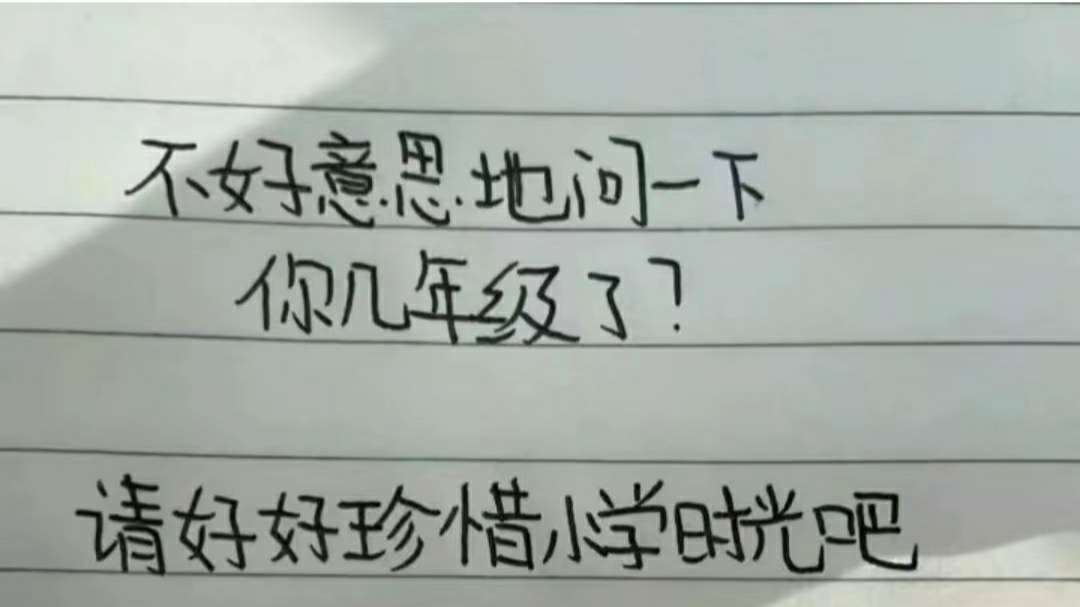 不好意思地问一下
你几年级了?
请好好珍惜小学时光吧